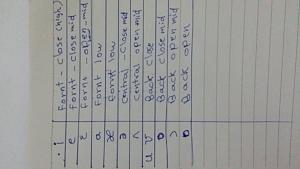 i Fornt - close (high)
e Fornt - close mid
ɛ Fornt - open - mid
a Fornt low
æ Fornt low
ə central - close mid
ʌ central open mid
u ʊ Back close
o Back close mid
ɔ Back open mid
ɒ Back open